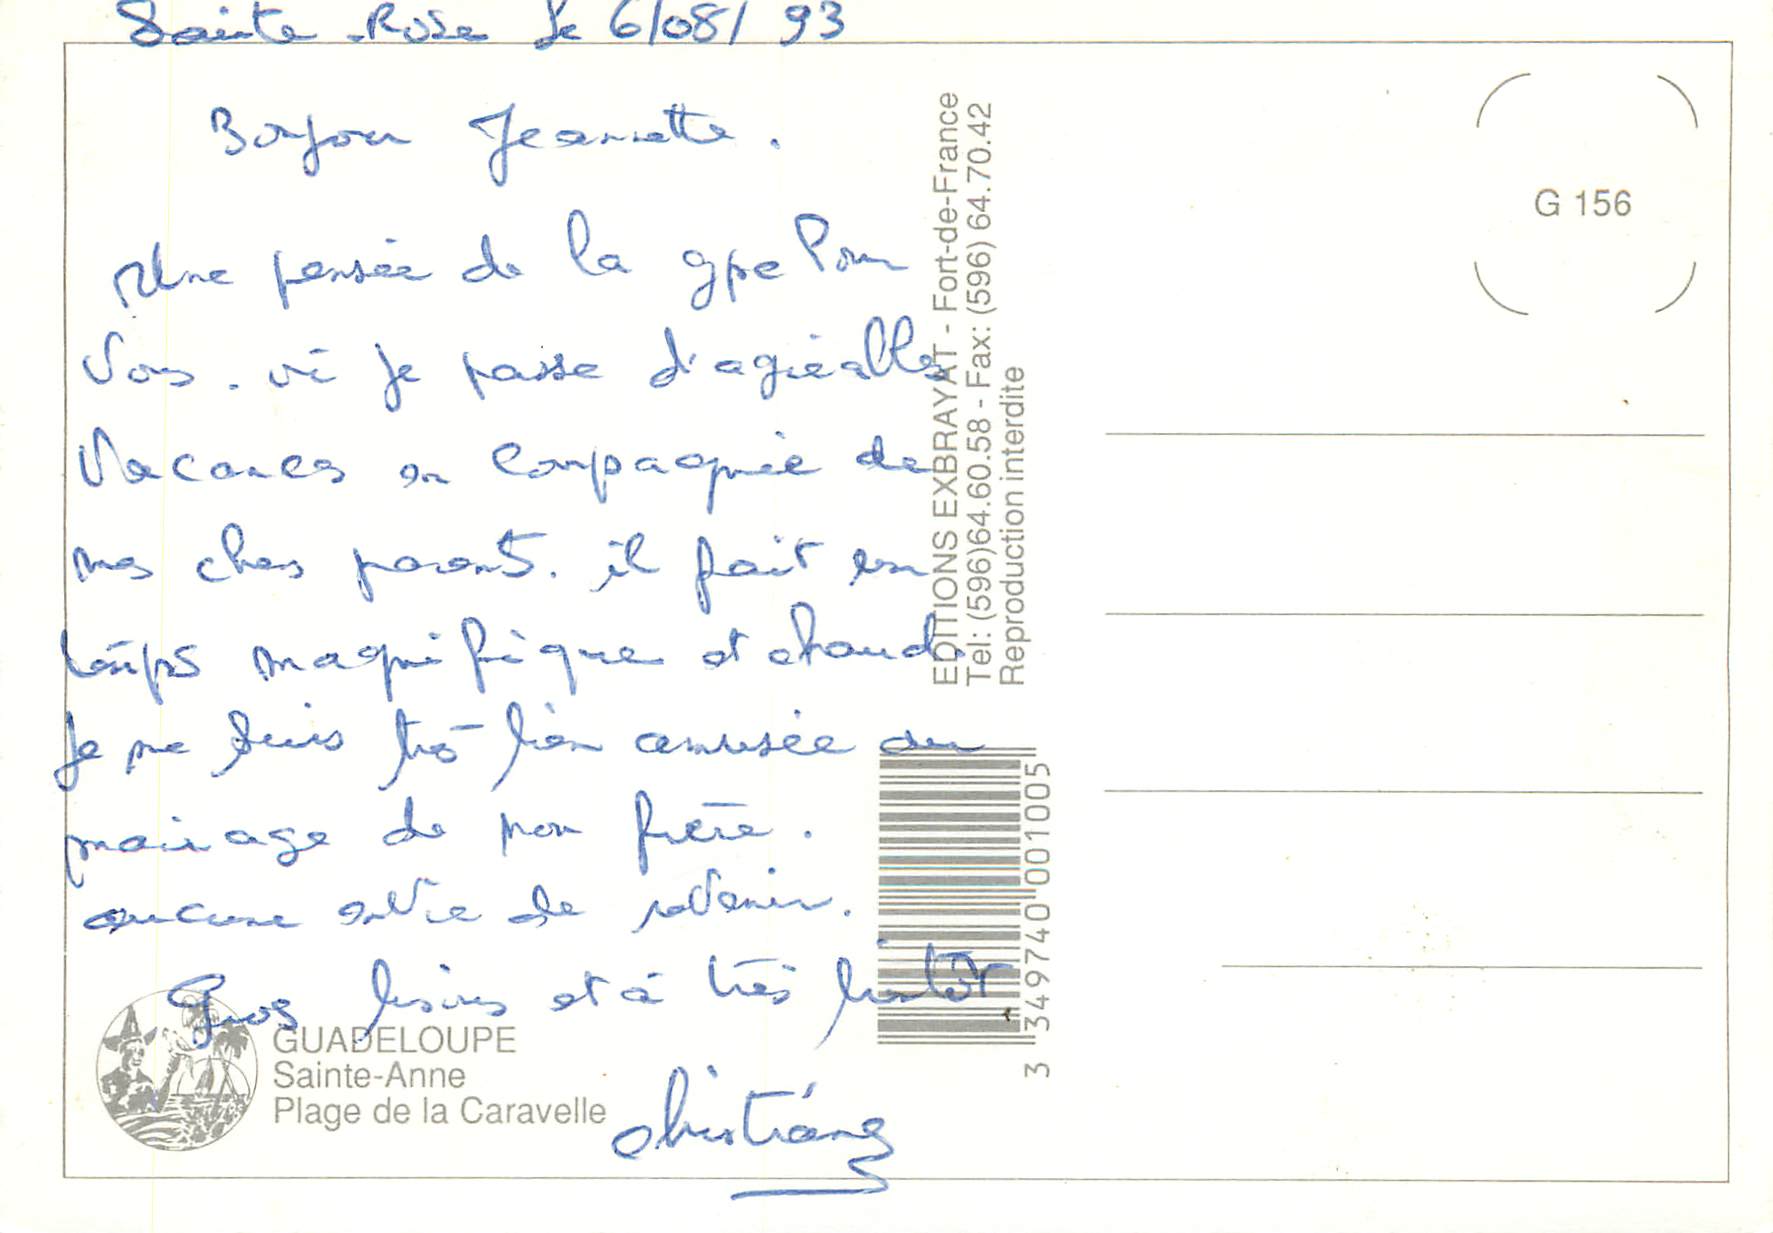 Sainte Rose le 6/08/93
Bonjour Jeannette.
Une pensée de la gpe Pour
Vous. ici Je passe d'agréables
Vacances en compagnie de
mes chers parents. il fait un
temps magnifique et chaud
Je me suis très bien amusée au
mariage de mon frère.
aucune envie de revenir.
Gros bisous et à très bientôt
Christiane
GUADELOUPE
Sainte-Anne
Plage de la Caravelle
EDITIONS EXBRAYAT - Fort-de-France
Tel: (596)64.60.58 - Fax: (596) 64.70.42
Reproduction interdite
3 349740 001005
G 156